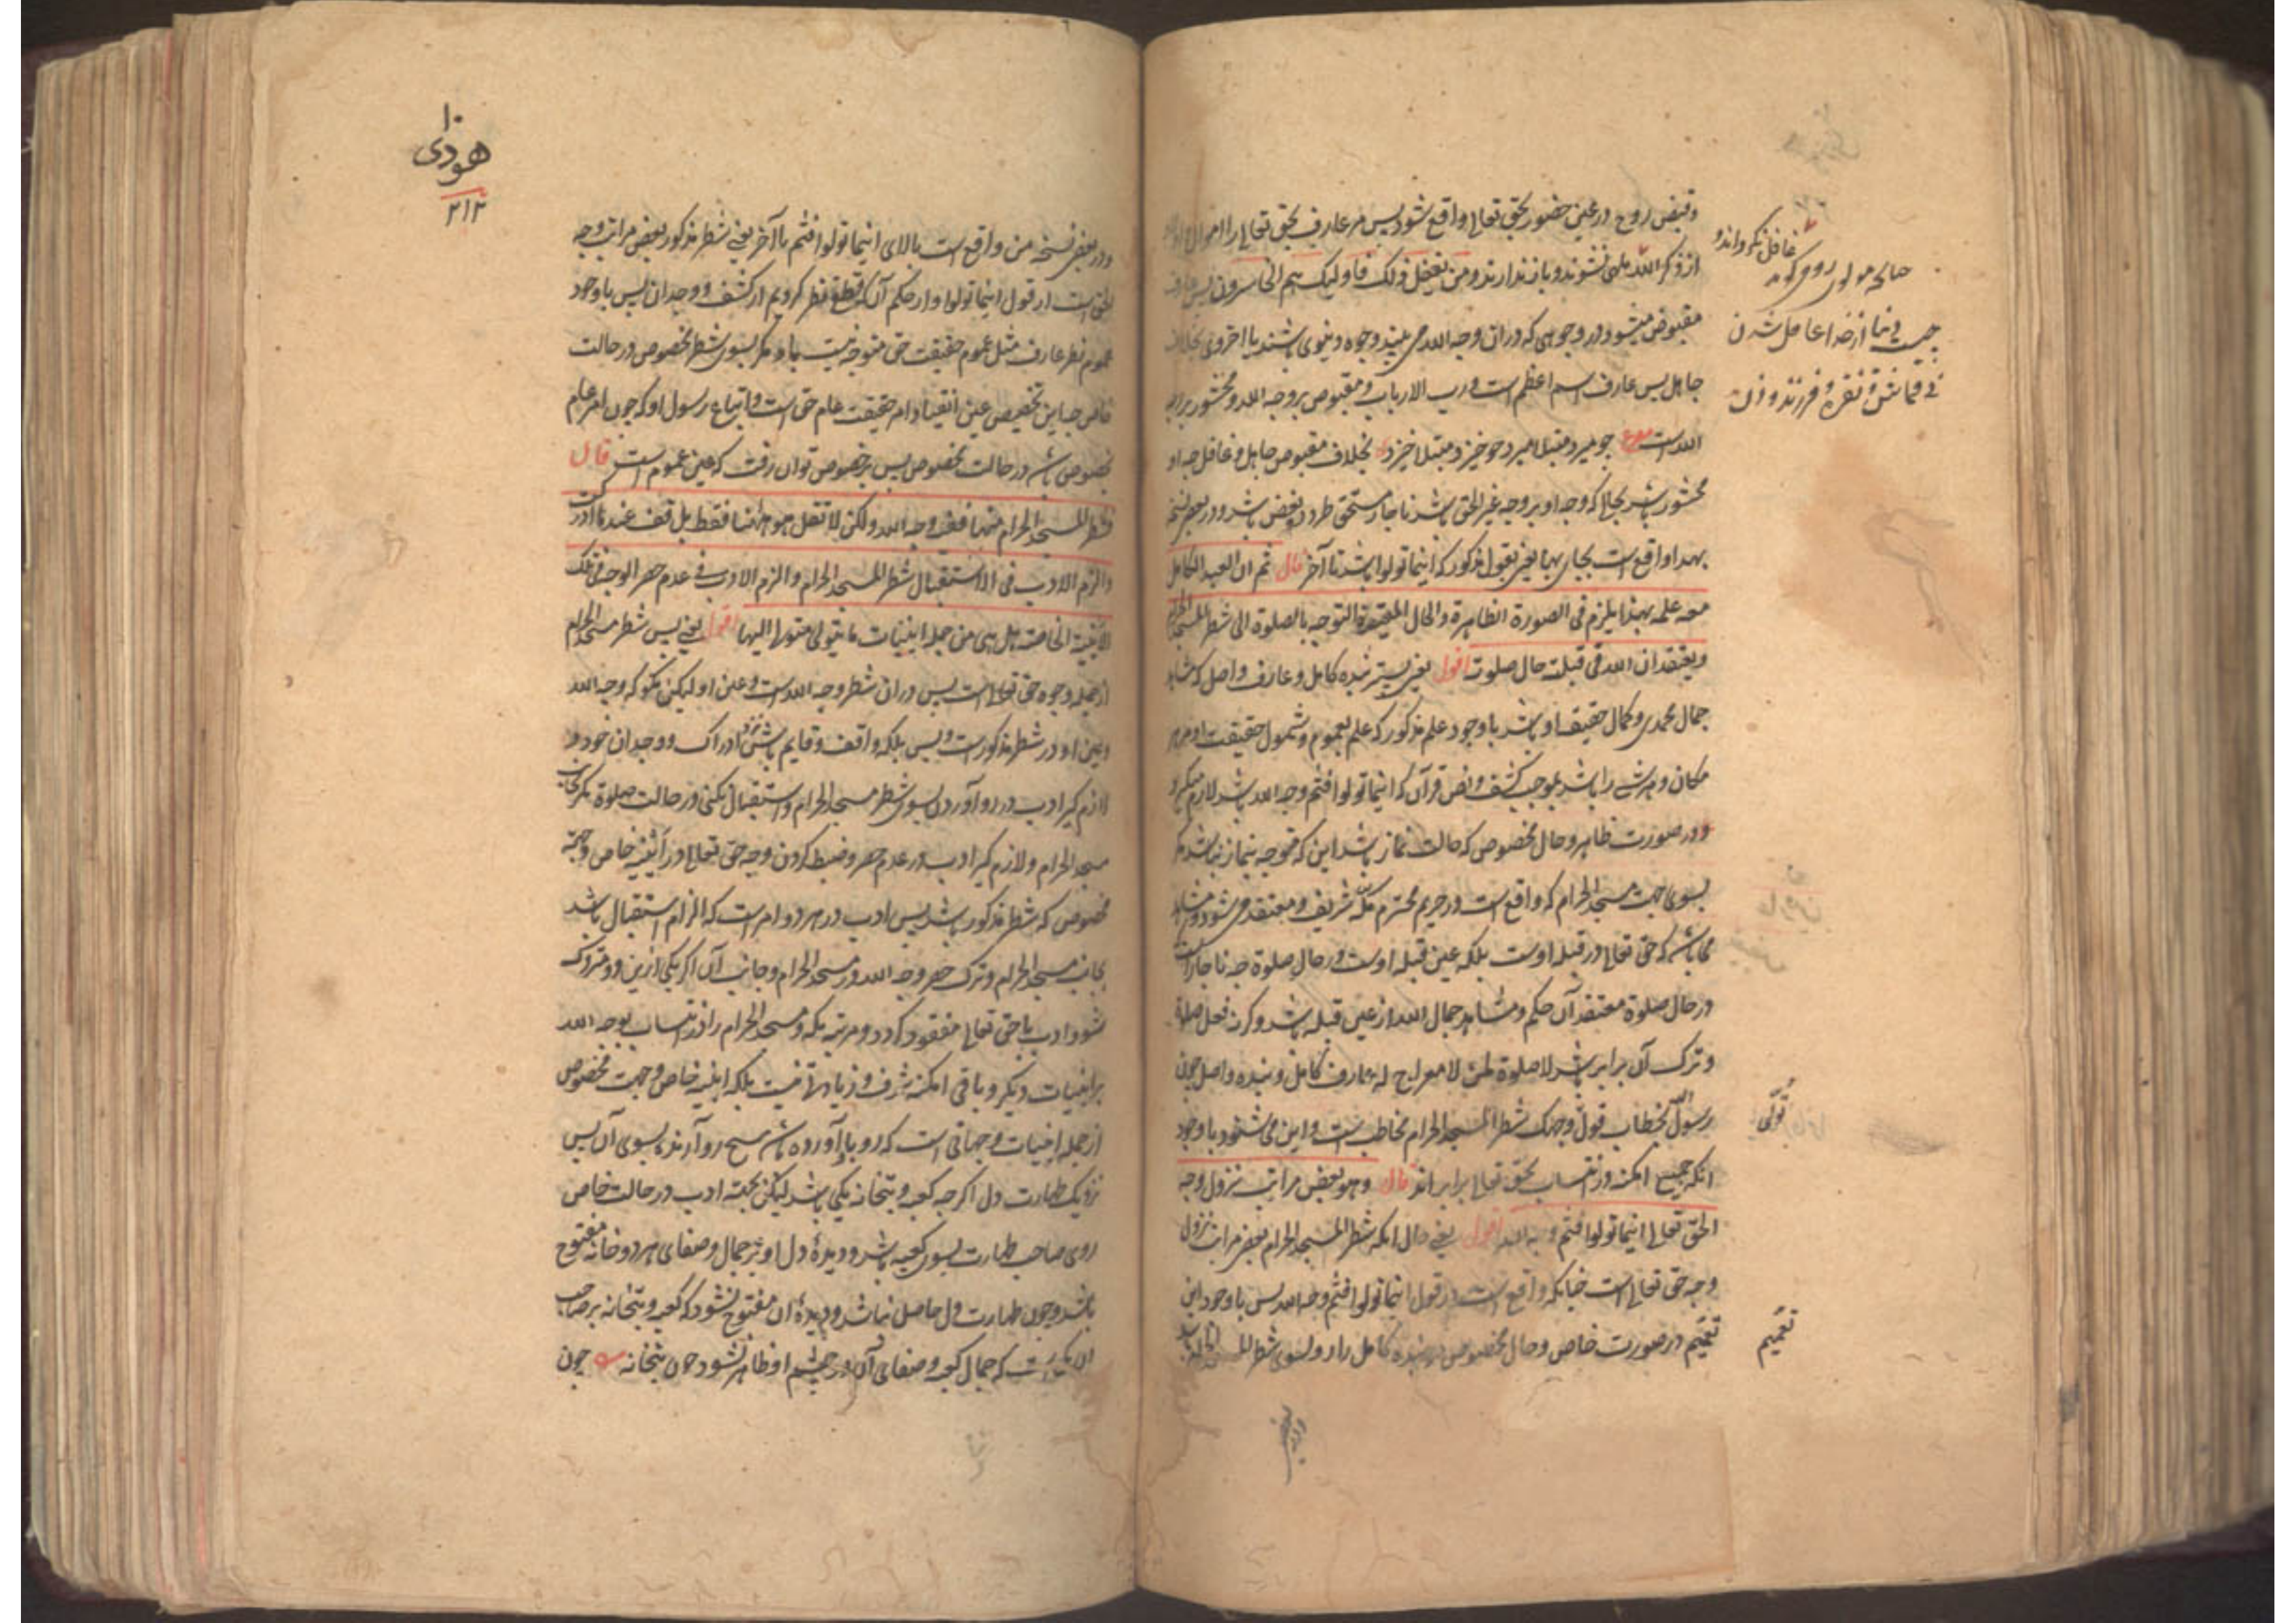 وقبض روح در عین حضور بحق تعالی واقع شود پس مر عارف بحق تعالی را اموال و اولاد
از ذکر الله ملهی نشوند و باز ندارند و من یفعل ذلک فاولیک هم الخاسرون پس عارف
مقبوض میشود در وجوهی که دران وجه الله می بیند وجوه دنیوی باشند یا اخروی بخلاف
جاهل پس عارف اسم اعظم است و رب الارباب و مقبوض بر وجه الله و محشور بر وجه
الله است چو میرد مبتلا میرد چو خیزد مبتلا خیزد بخلاف مقبوض جاهل و غافل چه او
محشور باشد بجای که وجه او بر وجه غیر الحق باشد ناچار مستحق طرد و بغض باشد و در بعض نسخ
بهذا واقع است بجای بها یعنی بقول مذکور که اینما تولوا باشد تا آخر قال ثم ان العبد الکامل
مع علمه بهذا یلزم فی الصورة الظاهرة والحال المقیدة التوجه بالصلوة الی شطر المسجد الحرام
ویعتقد ان الله فی قبلته حال صلوته اقول یعنی پستر بنده کامل و عارف واصل که مشاهد
جمال محمدی و کمال حقیقت او باشد با وجود علم مذکور که علم بعموم و شمول حقیقت او مر هر
مکان و هر شے را باشد بموجب کشف و نص قرآن که اینما تولوا فثم وجه الله باشد لازم میگیرد
در صورت ظاهر و حال مخصوص که حالت نماز باشد این که متوجه بنماز نباشد مگر
بسوی جهت مسجد الحرام که واقع است در حریم محترم مکه شریف و معتقد می شود و مشاهد
می باشد که حق تعالی در قبله اوست بلکه عین قبله اوست در حال صلوة چه ناچار است
در حال صلوة معتقد آن حکم و مشاهد جمال الله از عین قبله باشد وگرنه فعل صلوة
و ترک آن برابر باشد لا صلوة لمن لا معراج له عارف کامل و بنده واصل چون
رسول الله بخطاب فول وجهک شطر المسجد الحرام مخاطب است و این می شنود با وجود
آنکه جمیع امکنه در انتساب بحق تعالی برابر اند قال وهو بعض مراتب نزول وجه
الحق تعالی اینما تولوا فثم وجه الله اقول یعنی حال آنکه شطر المسجد الحرام بعض مراتب نزول
وجه حق تعالی است چنانکه واقع است در قول اینما تولوا فثم وجه الله پس با وجود این
تعمیم در صورت خاص و حال مخصوص بنده کامل را رو بسوی شطر المسجد الحرام
غافل نگرداند و
چنانچه مولوی رومی گوید
چیست دنیا از خدا غافل شدن
نی قماش و نقره و فرزند و زن
تولی
تعمیم
۱۰
هودی
۲۱۲
و در بعض نسخه من واقع است بالای اینما تولوا فثم تا آخر یعنی شطر مذکور بعض مراتب وجه
الحق است از قول اینما تولوا و از حکم آن که قطع نظر کردیم از کشف و وجدان پس با وجود
عموم نظر عارف مثل عموم حقیقت حق متوجه نیست باو مگر بسوی شطر مخصوص در حالت
خاص چه این تخصیص عین انقیاد امر حقیقت عام حق است و اتباع رسول او که چون امر عام
مخصوص باشد در حالت مخصوص پس بر خصوص توان رفت که عین عموم است قال
فشطر المسجد الحرام منها ففیه وجه الله ولکن لا تقل هو هاهنا فقط بل قف عند ما ادرکت
والزم الادب فی الاستقبال شطر المسجد الحرام والزم الادب فی عدم حصر الوجه فی تلک
الاینیة الخاصة بل هی من جملة اینیات ما یتولی متول الیها اقول یعنی پس شطر مسجد الحرام
از جمله وجوه حق تعالی است پس دران شطر وجه الله است و عین او لیکن مگو که وجه الله
وعین او در شطر مذکور است و بس بلکه واقف و قایم باش نزد ادراک و وجدان خود و
لازم گیر ادب در رو آوردن بسوی شطر مسجد الحرام و استقبال نکنی در حالت صلوة مگر بجانب
مسجد الحرام و لازم گیر ادب در عدم حصر و ضبط کردن وجه حق تعالی در اینیه خاص و جهة
مخصوص که شطر مذکور باشد پس ادب در هر دو امر است که الزام استقبال باشد
بجانب مسجد الحرام و ترک حصر وجه الله در مسجد الحرام و جانب آن اگر یکی ازین دو متروک
شود ادب با حق تعالی مفقود گردد و مرتبه مکه و مسجد الحرام را در انتساب بوجه الله
بر اینیات دیگر و باقی امکنه شرف و زیادتی نیست بلکه اینیه خاص و جهت مخصوص
از جمله اینیات و جهاتی است که رو بآن آورده باشد هیچ رو آرنده بسوی آن پس
نزدیک طهارت دل اگرچه کعبه و بتخانه یکی باشد لیکن بجهة ادب در حالت خاص
روی صاحب طهارت بسوی کعبه باشد و دیدهٔ دل او بر جمال و صفای هر دو خانه مفتوح
باشد و چون طهارت دل حاصل نباشد و دیدهٔ آن مفتوح نشود که کعبه و بتخانه بر صاحب
آن یکیست که جمال کعبه و صفای آن در چشم او ظاهر نشود چون بتخانه چون